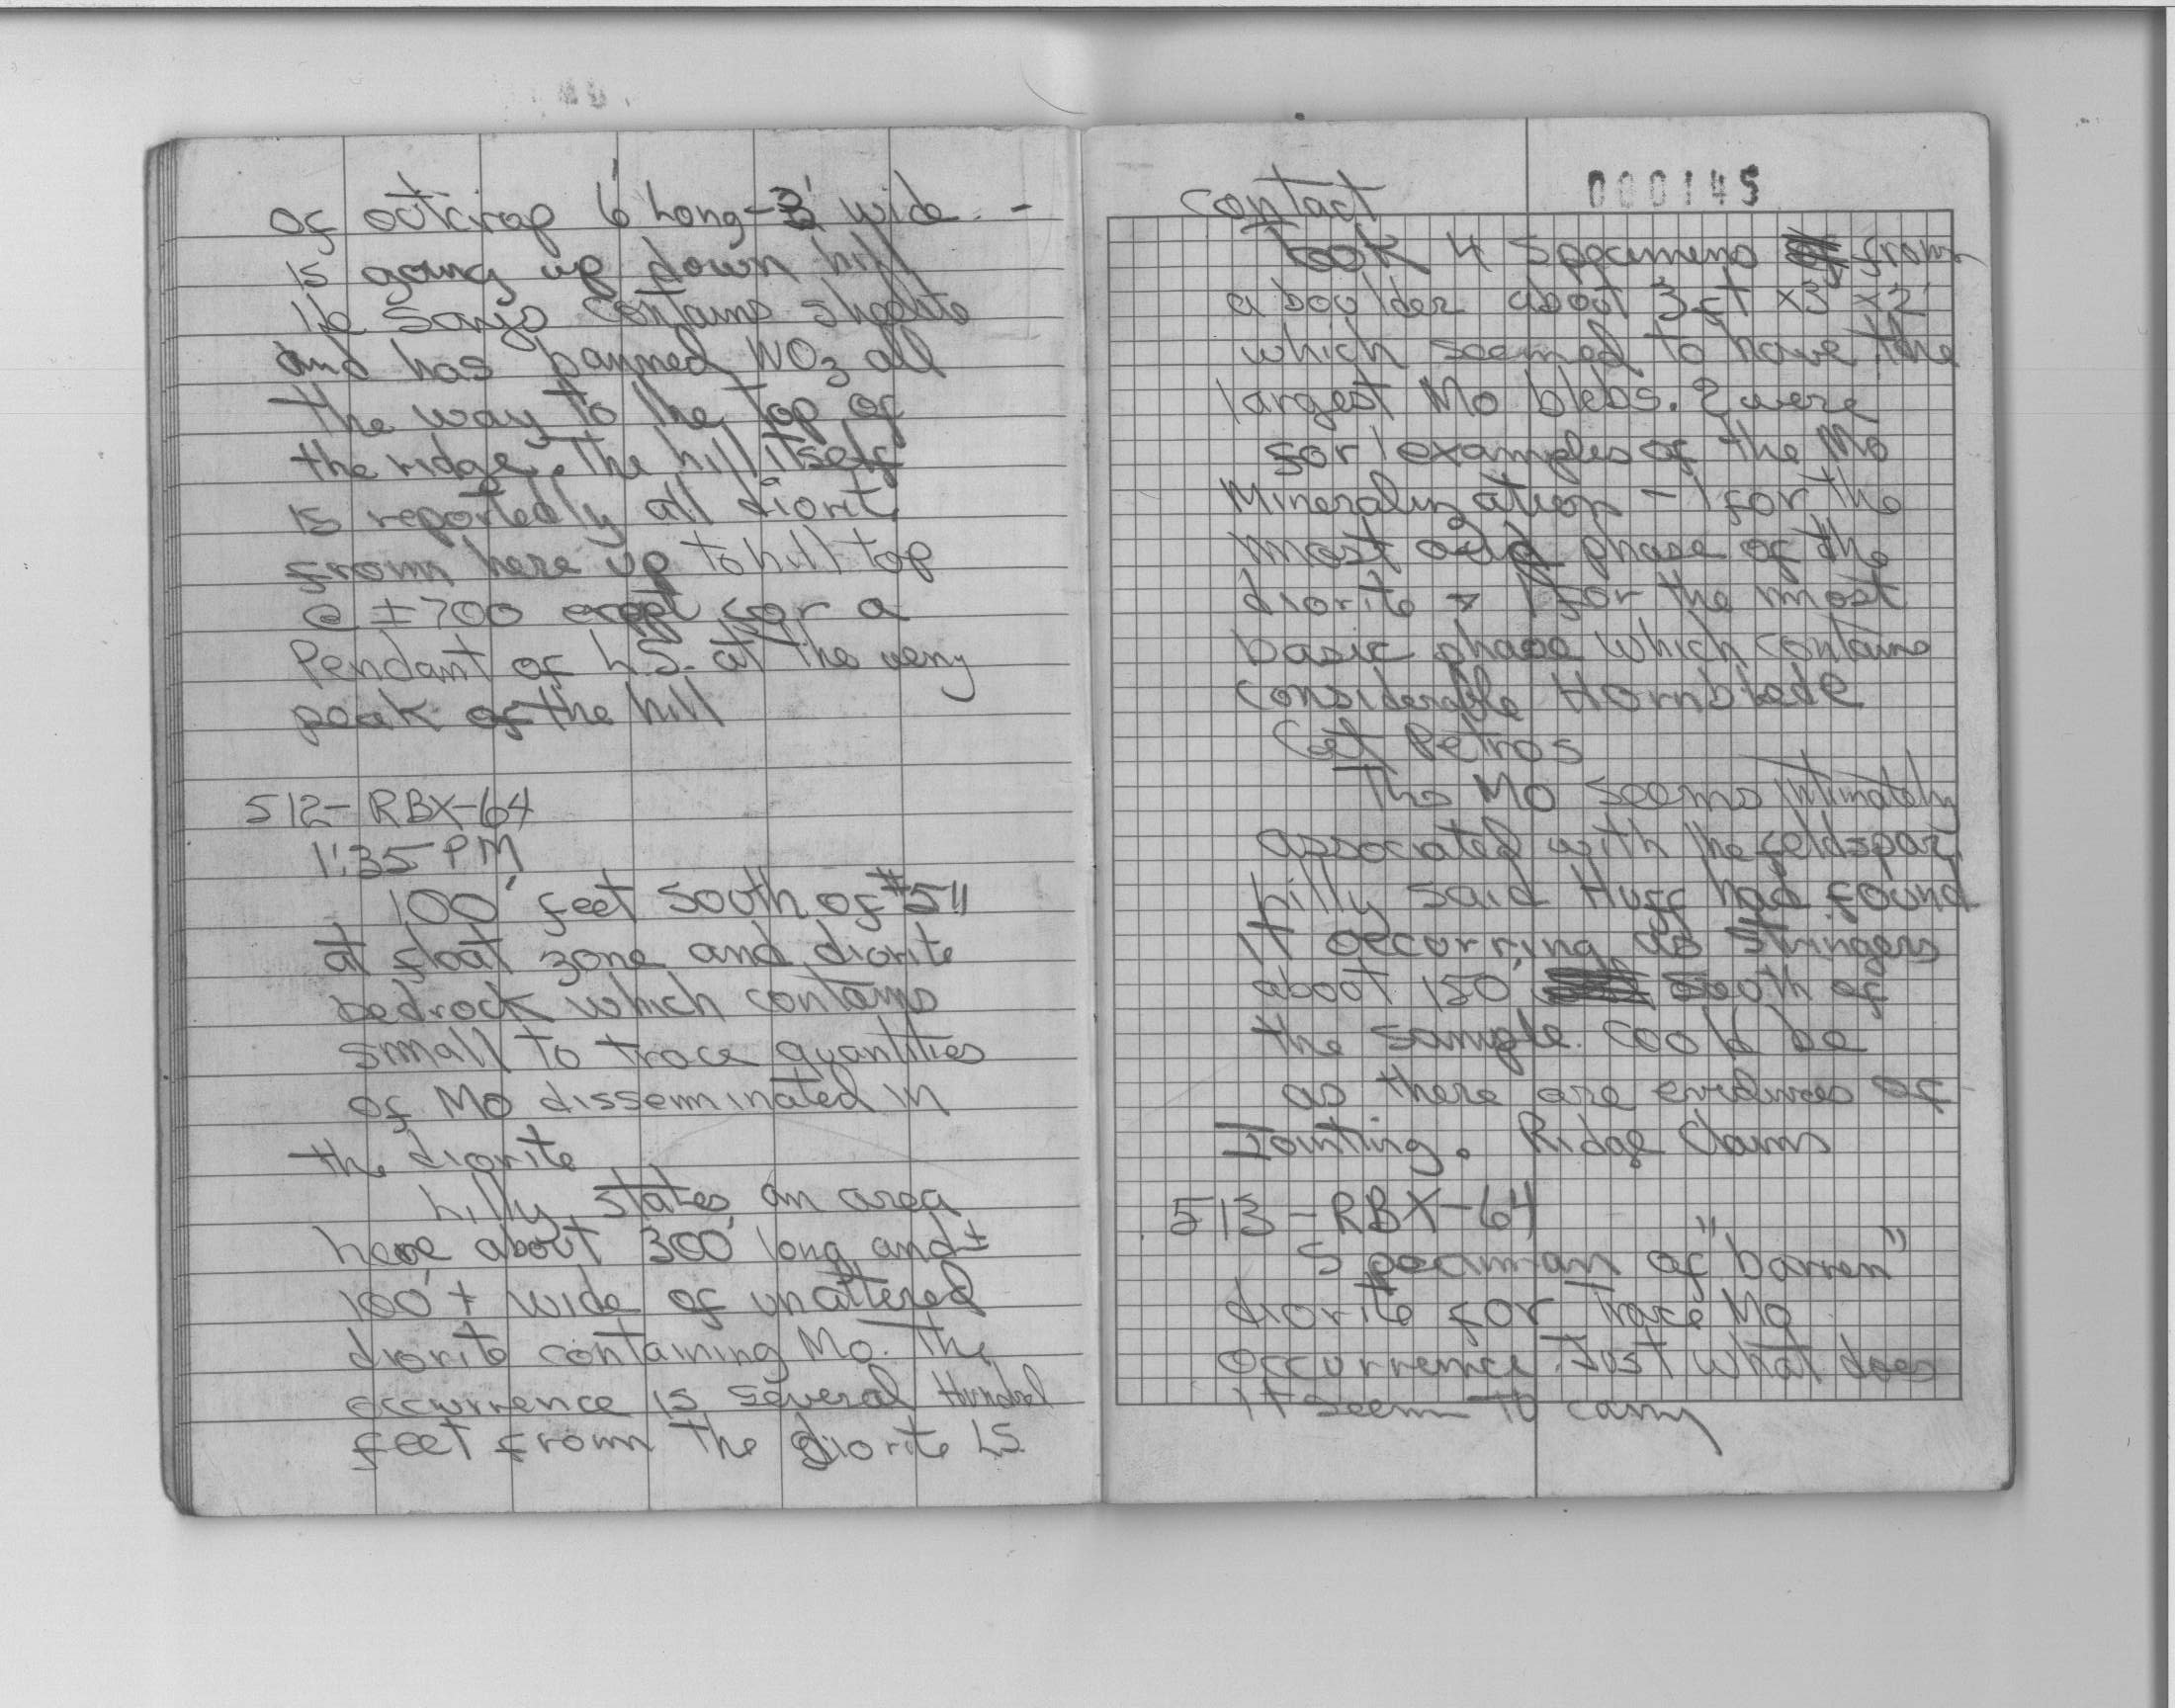 of outcrop 6' Long - 3' wide -
is going up down hill
He says contains sheelite
and has panned WO3 all
the way to the top of
the ridge. The hill itself
is reportedly all diorit
from here up to hill top
@ ±700 except for a
Pendant of LS. at the very
peak of the hill
512-RBX-64
1:35 PM
100' feet south of #511
at float zone and diorite
bedrock which contains
small to trace quantities
of Mo disseminated in
the diorite
Lilly states an area
here about 300' long and ±
100' + wide of unaltered
diorite containing Mo. The
occurrence is several Hundred
feet from the diorite LS
000145
contact
took 4 specimens from
a boulder about 3 ft x3' x2'
which seemed to have the
largest Mo blebs. 2 were
for examples of the Mo
Mineralization - 1 for the
most acid phase of the
diorite + 1 for the most
basic phase which contains
considerable Hornblede
Get Petros
The Mo seems intimately
associated with the feldspar.
Lilly said Huff had found
it occurring as stringers
about 150' South of
the sample. Could be
as there are evidences of
Jointing. Ridge Claims
513-RBX-64
Speciman of "barren"
diorite for Trace Mo
occurrence. Just what does
it seem to carry